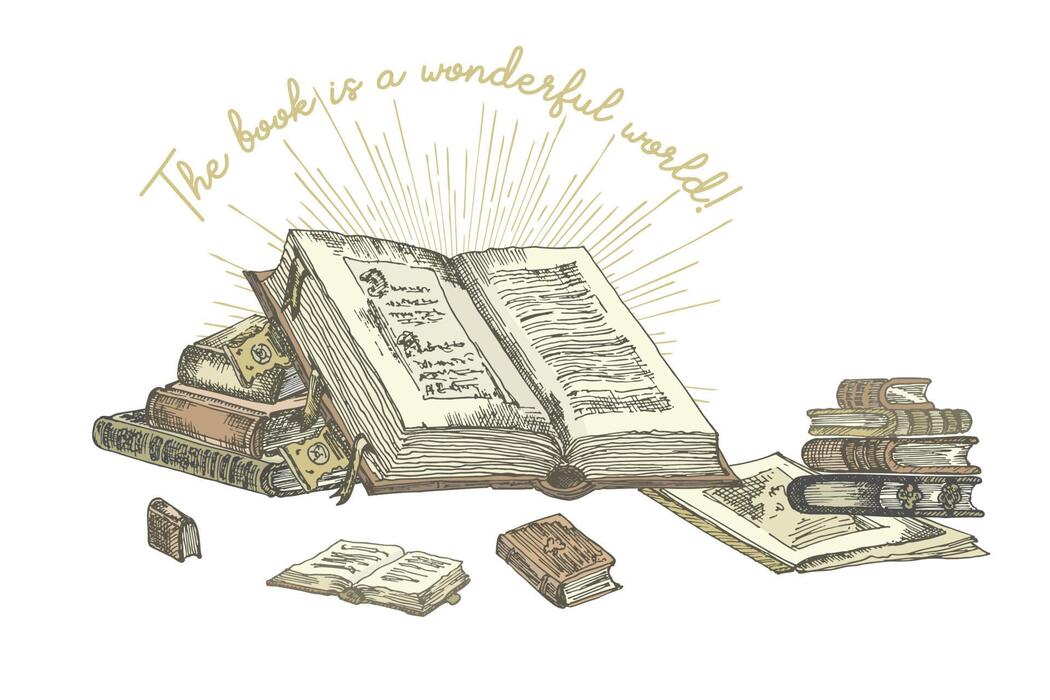 The book is a wonderful world!